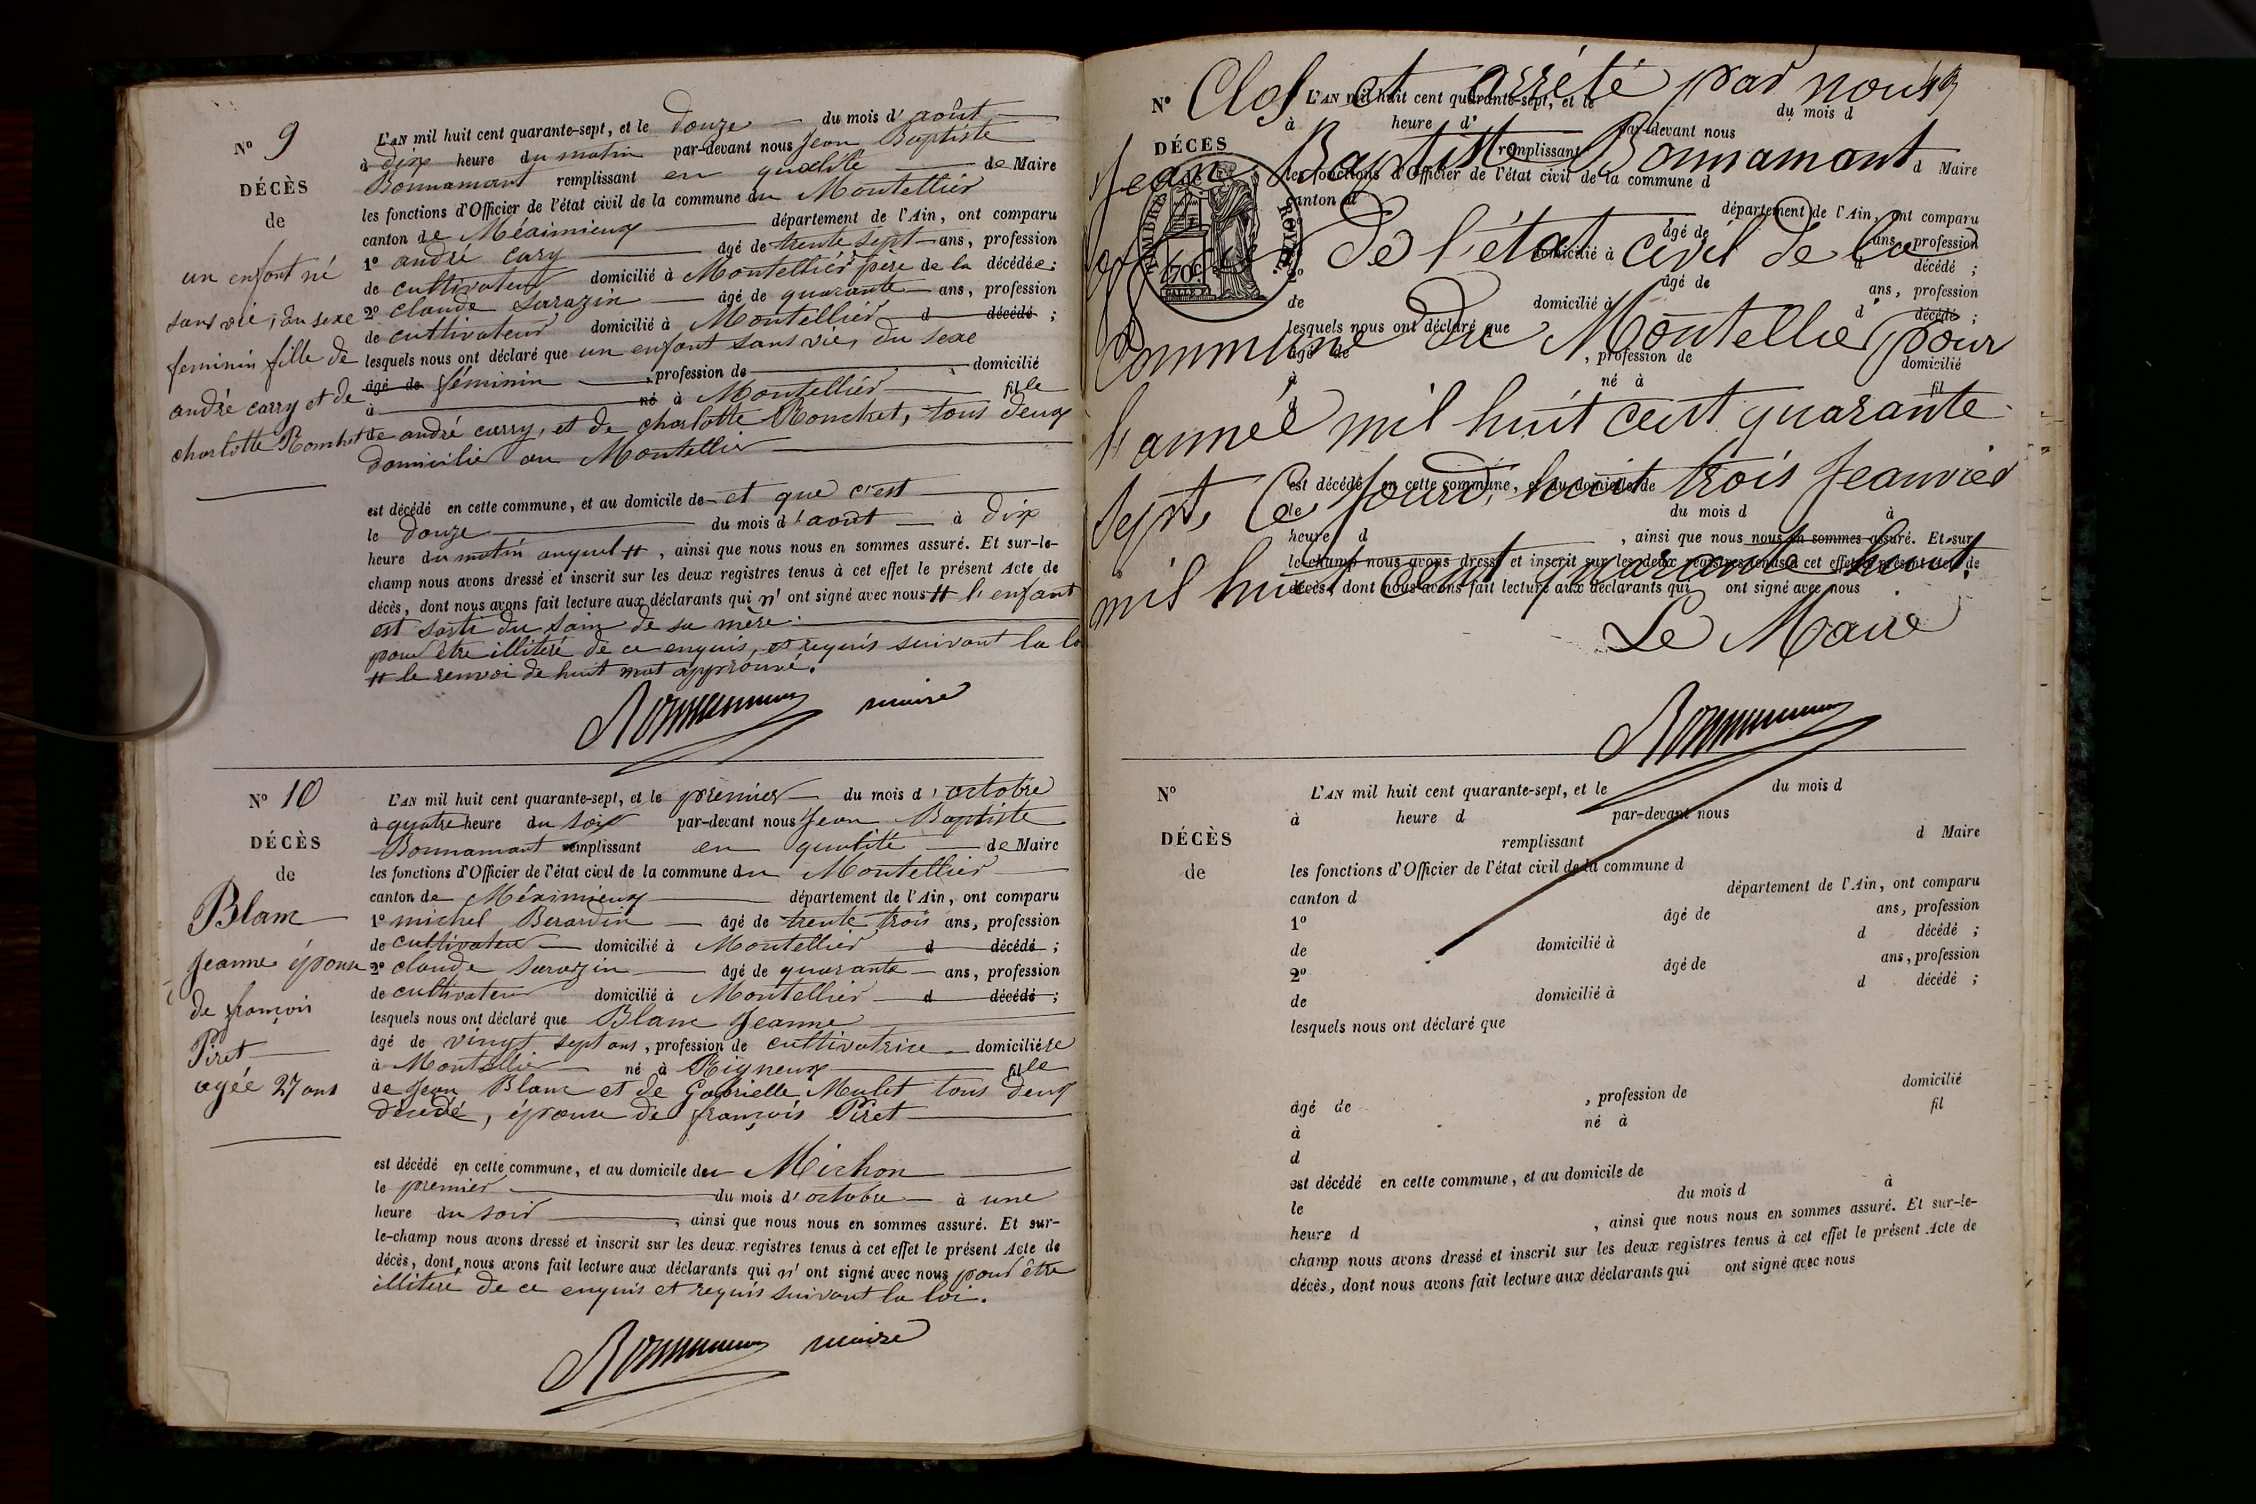 N° 9
DÉCÈS
de
un enfant né
sans vie, du sexe
feminin fille de
andré carry et de
charlotte Ronchet
L'AN mil huit cent quarante-sept, et le douze du mois d'août
à dix heure du matin par-devant nous Jean Baptiste
Bonnamant remplissant en qualité de Maire
les fonctions d'Officier de l'état civil de la commune du Montellier
canton de Méximieux département de l'Ain, ont comparu
1° andré cary âgé de trente sept ans, profession
de cultivateur domicilié à Montelliér pere de la décédée;
2° claude Sarazin âgé de quarante ans, profession
de cultivateur domicilié à Montelliér d décédé ;
lesquels nous ont déclaré que un enfant sans vie, du sexe
âgé de féminin , profession de domicilié
à né à Montelliér fille
de andré carry, et de charlotte Ronchet, tous deux
domicilié au Montellier
est décédé en cette commune, et au domicile de et que c'est
le douze du mois d'août à dix
heure du matin auquel # , ainsi que nous nous en sommes assuré. Et sur-le-
champ nous avons dressé et inscrit sur les deux registres tenus à cet effet le présent Acte de
décès, dont nous avons fait lecture aux déclarants qui n'ont signé avec nous # l'enfant
est sorti du sain de sa mère.
pour être illiteré de ce enquis, et requis suivant la loi
# le renvoi de huit mot approuvé.
Bonnamant maire
N° 10
DÉCÈS
de
Blanc
Jeanne épouse
de françois
Piret
agée 27 ans
L'AN mil huit cent quarante-sept, et le premier du mois d'octobre
à quatre heure du soir par-devant nous Jean Baptiste
Bonnamant remplissant en qualité de Maire
les fonctions d'Officier de l'état civil de la commune du Montellier
canton de Méximieux département de l'Ain, ont comparu
1° michel Berardin âgé de trente trois ans, profession
de cultivateur domicilié à Montellier d décédé ;
2° claude Sarazin âgé de quarante ans, profession
de cultivateur domicilié à Montellier d décédé ;
lesquels nous ont déclaré que Blanc Jeanne
âgé de vingt sept ans, profession de cultivatrice domiciliére
à Montellier né à Rigneux fille
de Jean Blanc et de Gabrielle Mulet tous deux
décédé, épouse de françois Piret
est décédé en cette commune, et au domicile de Michon
le premier du mois d'octobre à une
heure du soir , ainsi que nous nous en sommes assuré. Et sur-
le-champ nous avons dressé et inscrit sur les deux registres tenus à cet effet le présent Acte de
décès, dont nous avons fait lecture aux déclarants qui n'ont signé avec nous pour être
illiteré de ce enquis et requis suivant la loi.
Bonnamant maire
N° Clos et arrêté par nous
L'AN mil huit cent quarante-sept, et le du mois d
à heure d' par-devant nous
DÉCÈS
Jean Baptiste Bonnamant
remplissant d Maire
les fonctions d'Officier de l'état civil de la commune d
canton d département de l'Ain, ont comparu
TIMBRE ROYAL
70c
de l'état civil de la
âgé de ans, profession
domicilié à d décédé ;
2° âgé de ans, profession
de domicilié à d décédé ;
lesquels nous ont déclaré que
commune du Montellier pour
âgé de , profession de domicilié
à né à fil
l'année mil huit cent quarante
Sept, Ce Jourd'huit trois Jeanvier
est décédé en cette commune, et au domicile de
le du mois d à
heure d , ainsi que nous nous en sommes assuré. Et sur-
le-champ nous avons dressé et inscrit sur les deux registres tenus à cet effet le présent Acte de
mil huit cent quarante huit.
décès, dont nous avons fait lecture aux déclarants qui ont signé avec nous
Le Maire
Bonnamant
N°
DÉCÈS
de
L'AN mil huit cent quarante-sept, et le du mois d
à heure d par-devant nous
remplissant d Maire
les fonctions d'Officier de l'état civil de la commune d
canton d département de l'Ain, ont comparu
1° âgé de ans, profession
de domicilié à d décédé ;
2° âgé de ans, profession
de domicilié à d décédé ;
lesquels nous ont déclaré que
âgé de , profession de domicilié
à né à fil
d
est décédé en cette commune, et au domicile de
le du mois d à
heure d , ainsi que nous nous en sommes assuré. Et sur-le-
champ nous avons dressé et inscrit sur les deux registres tenus à cet effet le présent Acte de
décès, dont nous avons fait lecture aux déclarants qui ont signé avec nous